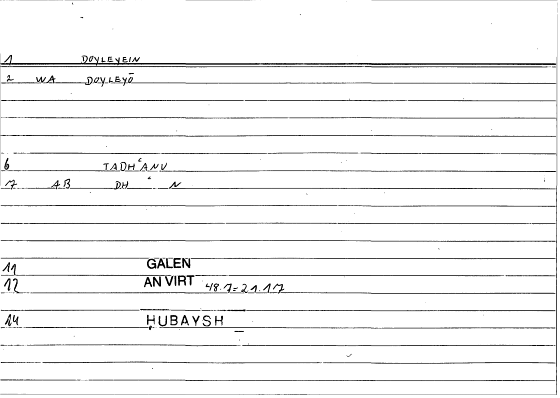 1 DOYLEYEIN
2 WA DOYLEYŌ
6 TADHʿANU
7 AB DH ʿ N
11 GALEN
12 AN VIRT 48.7=21.17
14 ḤUBAYSH